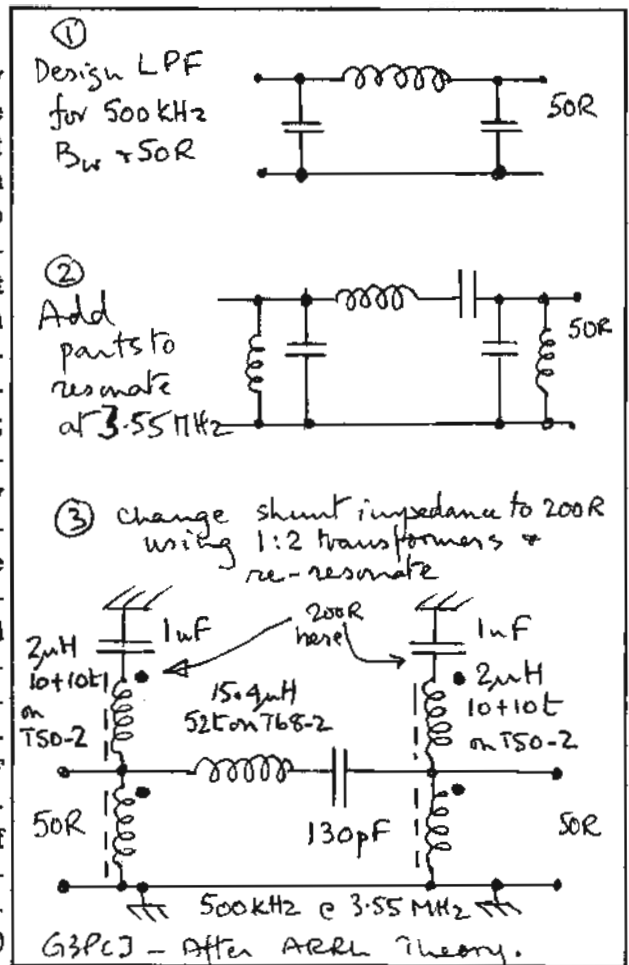 ①
Design LPF
for 500kHz
Bw + 50R
50R
②
Add
parts to
resonate
at 3.55MHz
50R
③ change shunt impedance to 200R
using 1:2 transformers +
re-resonate
1nF
200R
here
1nF
2µH
10+10t
on
T50-2
15.4µH
52t on T68-2
2µH
10+10t
on T50-2
50R
130pF
50R
500kHz @ 3.55 MHz
G3PCJ - After ARRL Theory.